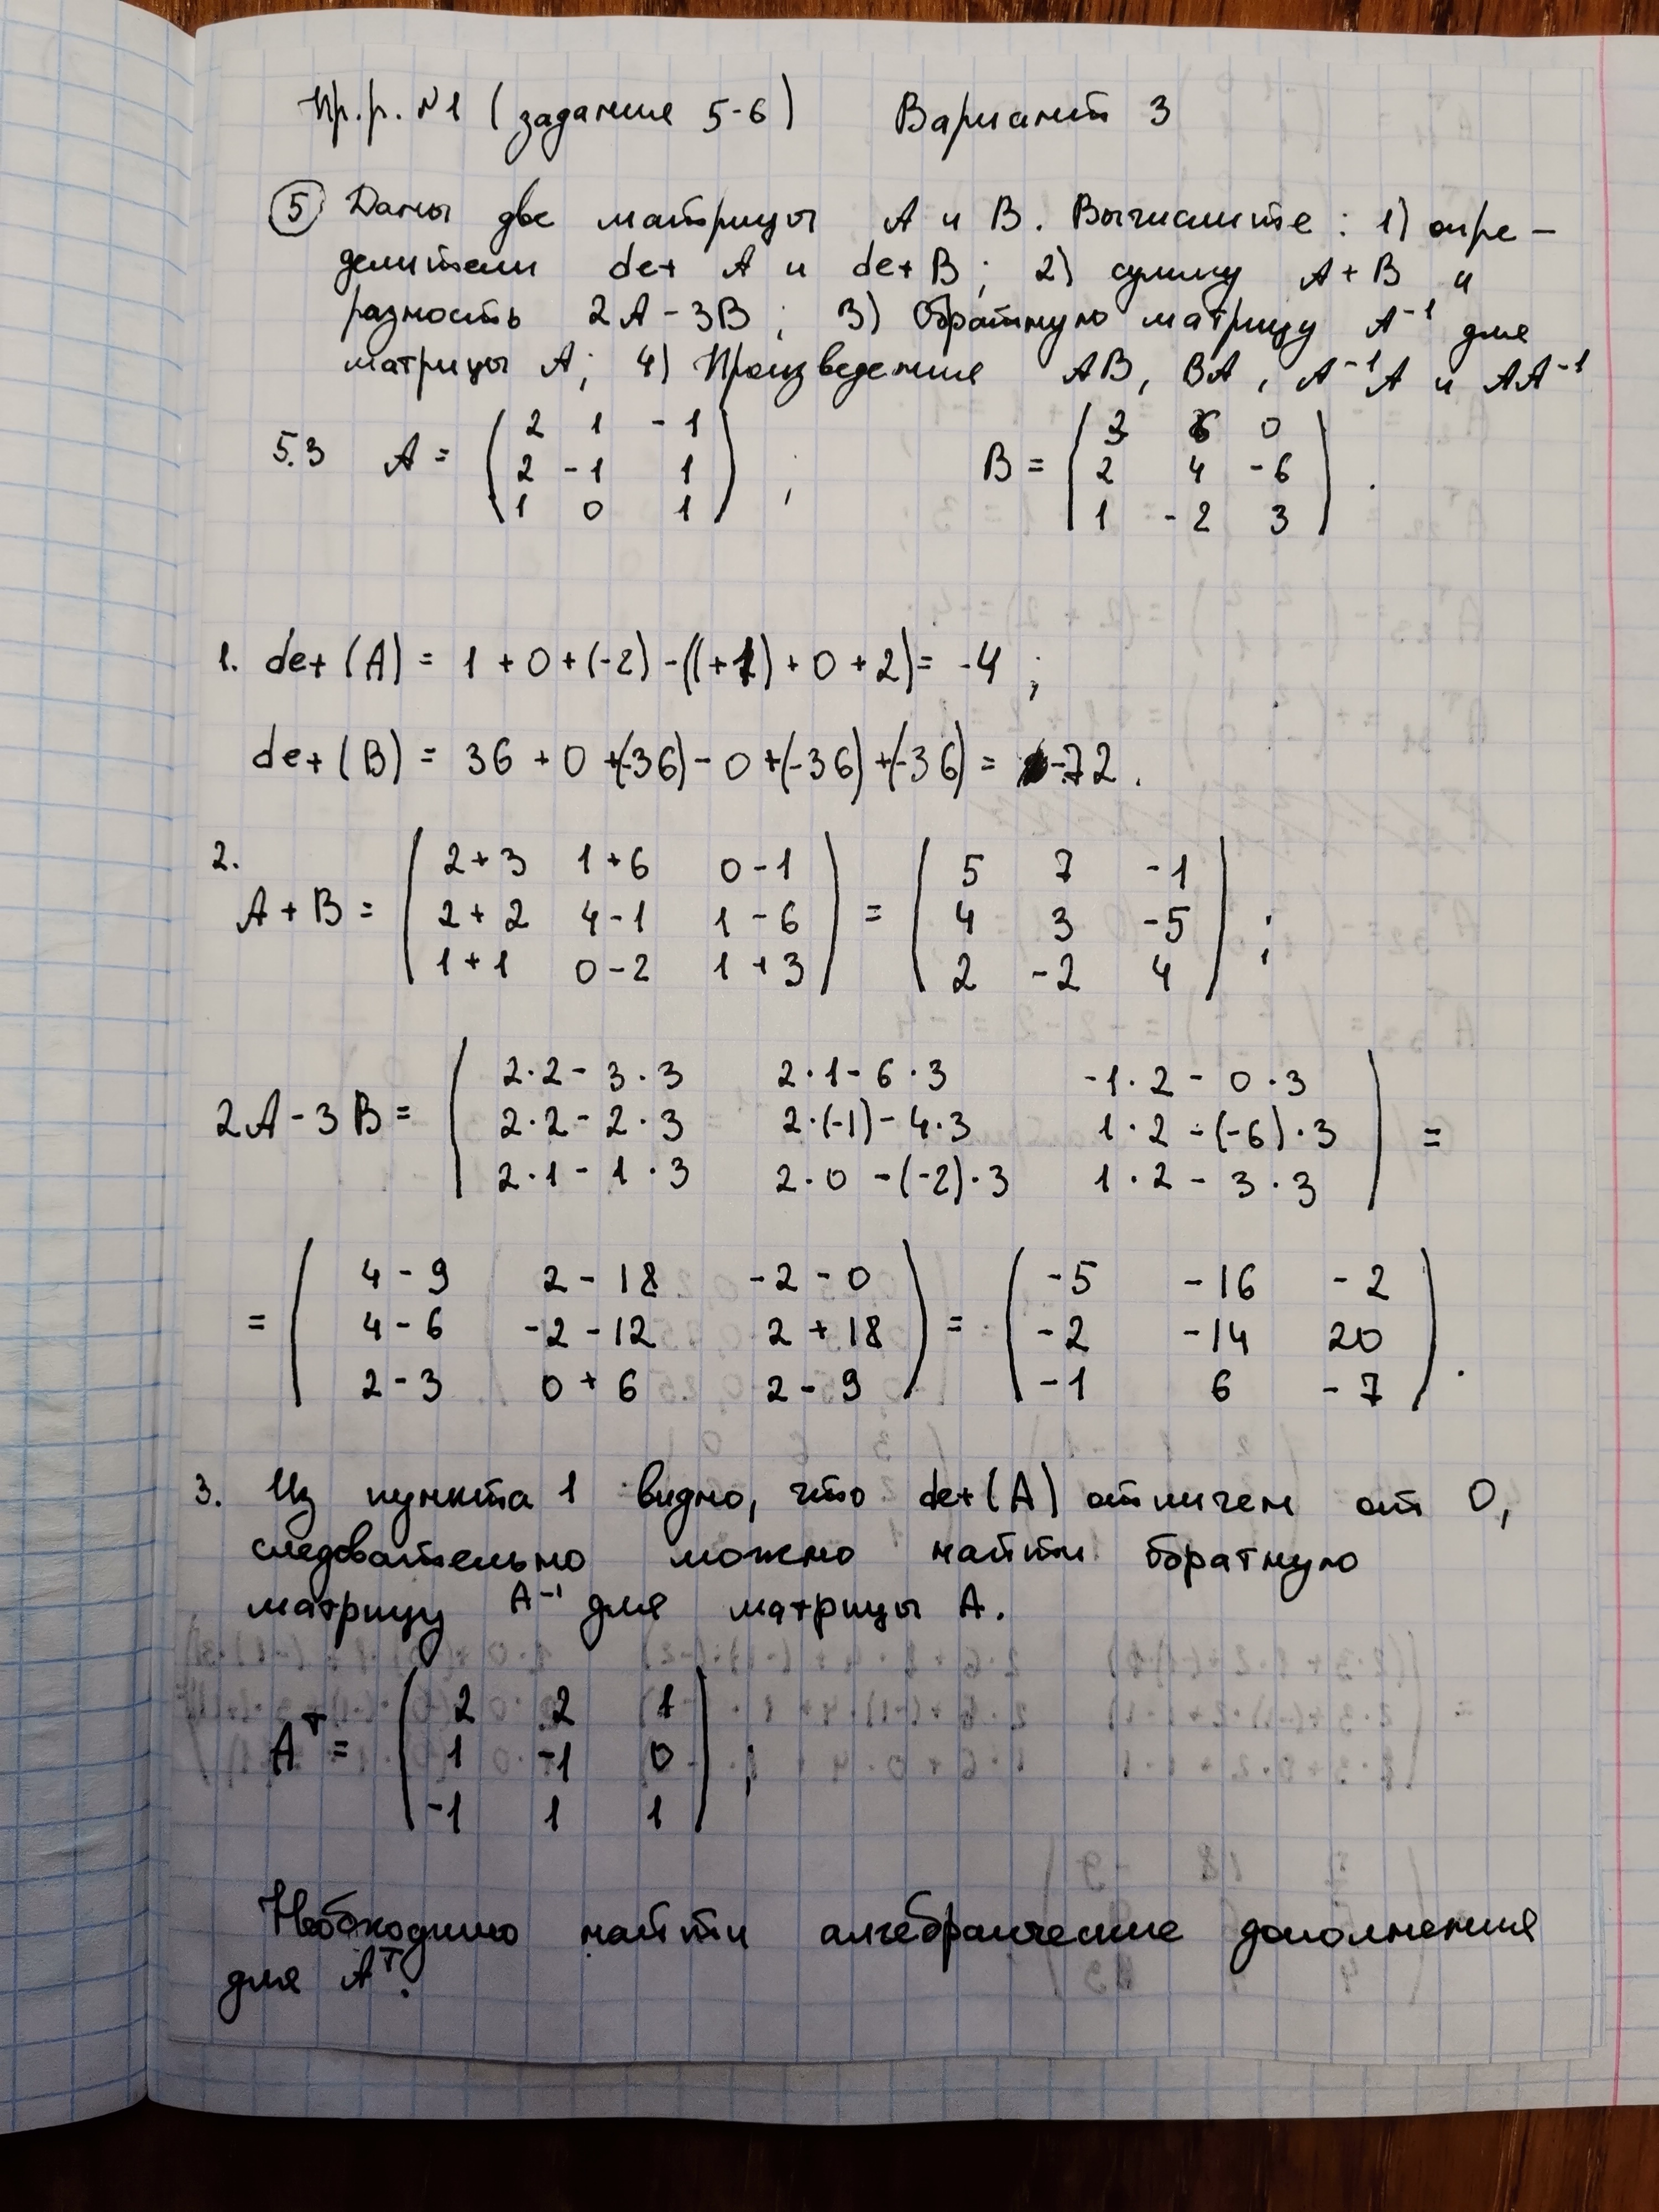 Пр.р. №1 (задание 5-6) Вариант 3
⑤ Даны две матрицы A и B. Вычислите: 1) опре-
делители det A и det B; 2) сумму A+B и
разность 2A-3B; 3) Обратную матрицу A⁻¹ для
матрицы A; 4) Произведения AB, BA, A⁻¹A и AA⁻¹
5.3 A = ( 2 1 -1 ; B = ( 3 6 0
2 -1 1 2 4 -6
1 0 1 ) 1 -2 3 ) .
1. det (A) = 1 + 0 + (-2) - ((+1) + 0 + 2) = -4 ;
det (B) = 36 + 0 + (-36) - 0 + (-36) + (-36) = -72 .
2.
A + B = ( 2+3 1+6 0-1 = ( 5 7 -1
2+2 4-1 1-6 4 3 -5
1+1 0-2 1+3 ) 2 -2 4 ) ;
2A - 3B = ( 2·2 - 3·3 2·1 - 6·3 -1·2 - 0·3
2·2 - 2·3 2·(-1) - 4·3 1·2 - (-6)·3
2·1 - 1·3 2·0 - (-2)·3 1·2 - 3·3 ) =
= ( 4-9 2-18 -2-0 = ( -5 -16 -2
4-6 -2-12 2+18 -2 -14 20
2-3 0+6 2-9 ) -1 6 -7 ) .
3. Из пункта 1 видно, что det(A) отличен от 0,
следовательно можно найти обратную
матрицу A⁻¹ для матрицы A.
Aᵀ = ( 2 2 1
1 -1 0
-1 1 1 ) ;
Необходимо найти алгебраические дополнения
для Aᵀ.